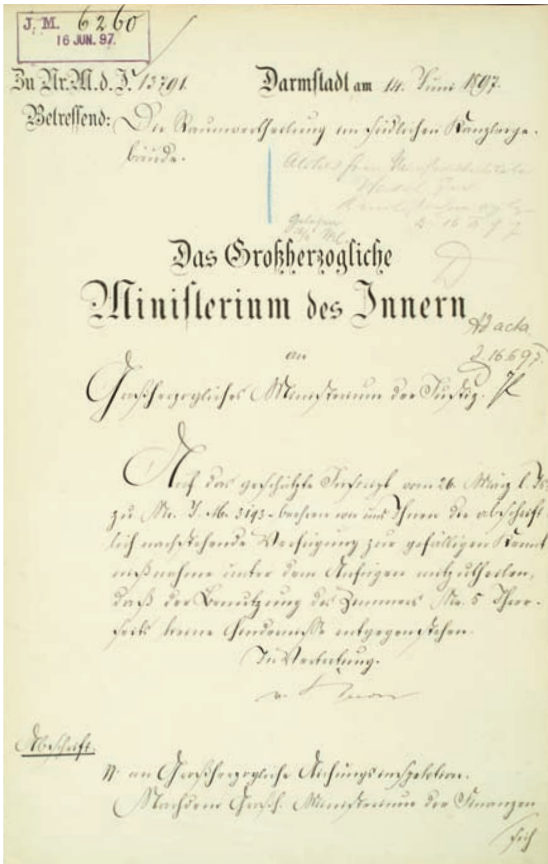 J. M. 6260
16 JUN. 97.
Zu Nr. M. d. J. 13791
Darmstadt am 14. Juni 1897.
Betreffend: Die Raumvertheilung im südlichen Kanzleige-
bäude.
gelesen
Das Großherzogliche
Ministerium des Innern
Ad acta
D 16 6 97.
an
Großherzogliches Ministerium der Justiz.
Auf das geschätzte Inserat vom 26. März l. Js.
zu Nr. J. M. 3193 beehren wir uns Ihnen die abschrift-
lich nachstehende Verfügung zur gefälligen Kennt-
nißnahme unter dem Anfügen mitzutheilen,
daß der Benutzung des Zimmers Nr. 5 Ihrer-
seits keine Hindernisse entgegenstehen.
In Vertretung.
Abschrift.
an Großherzogliche Aichungsinspektion.
Nachdem Großh. Ministerium der Finanzen
sich